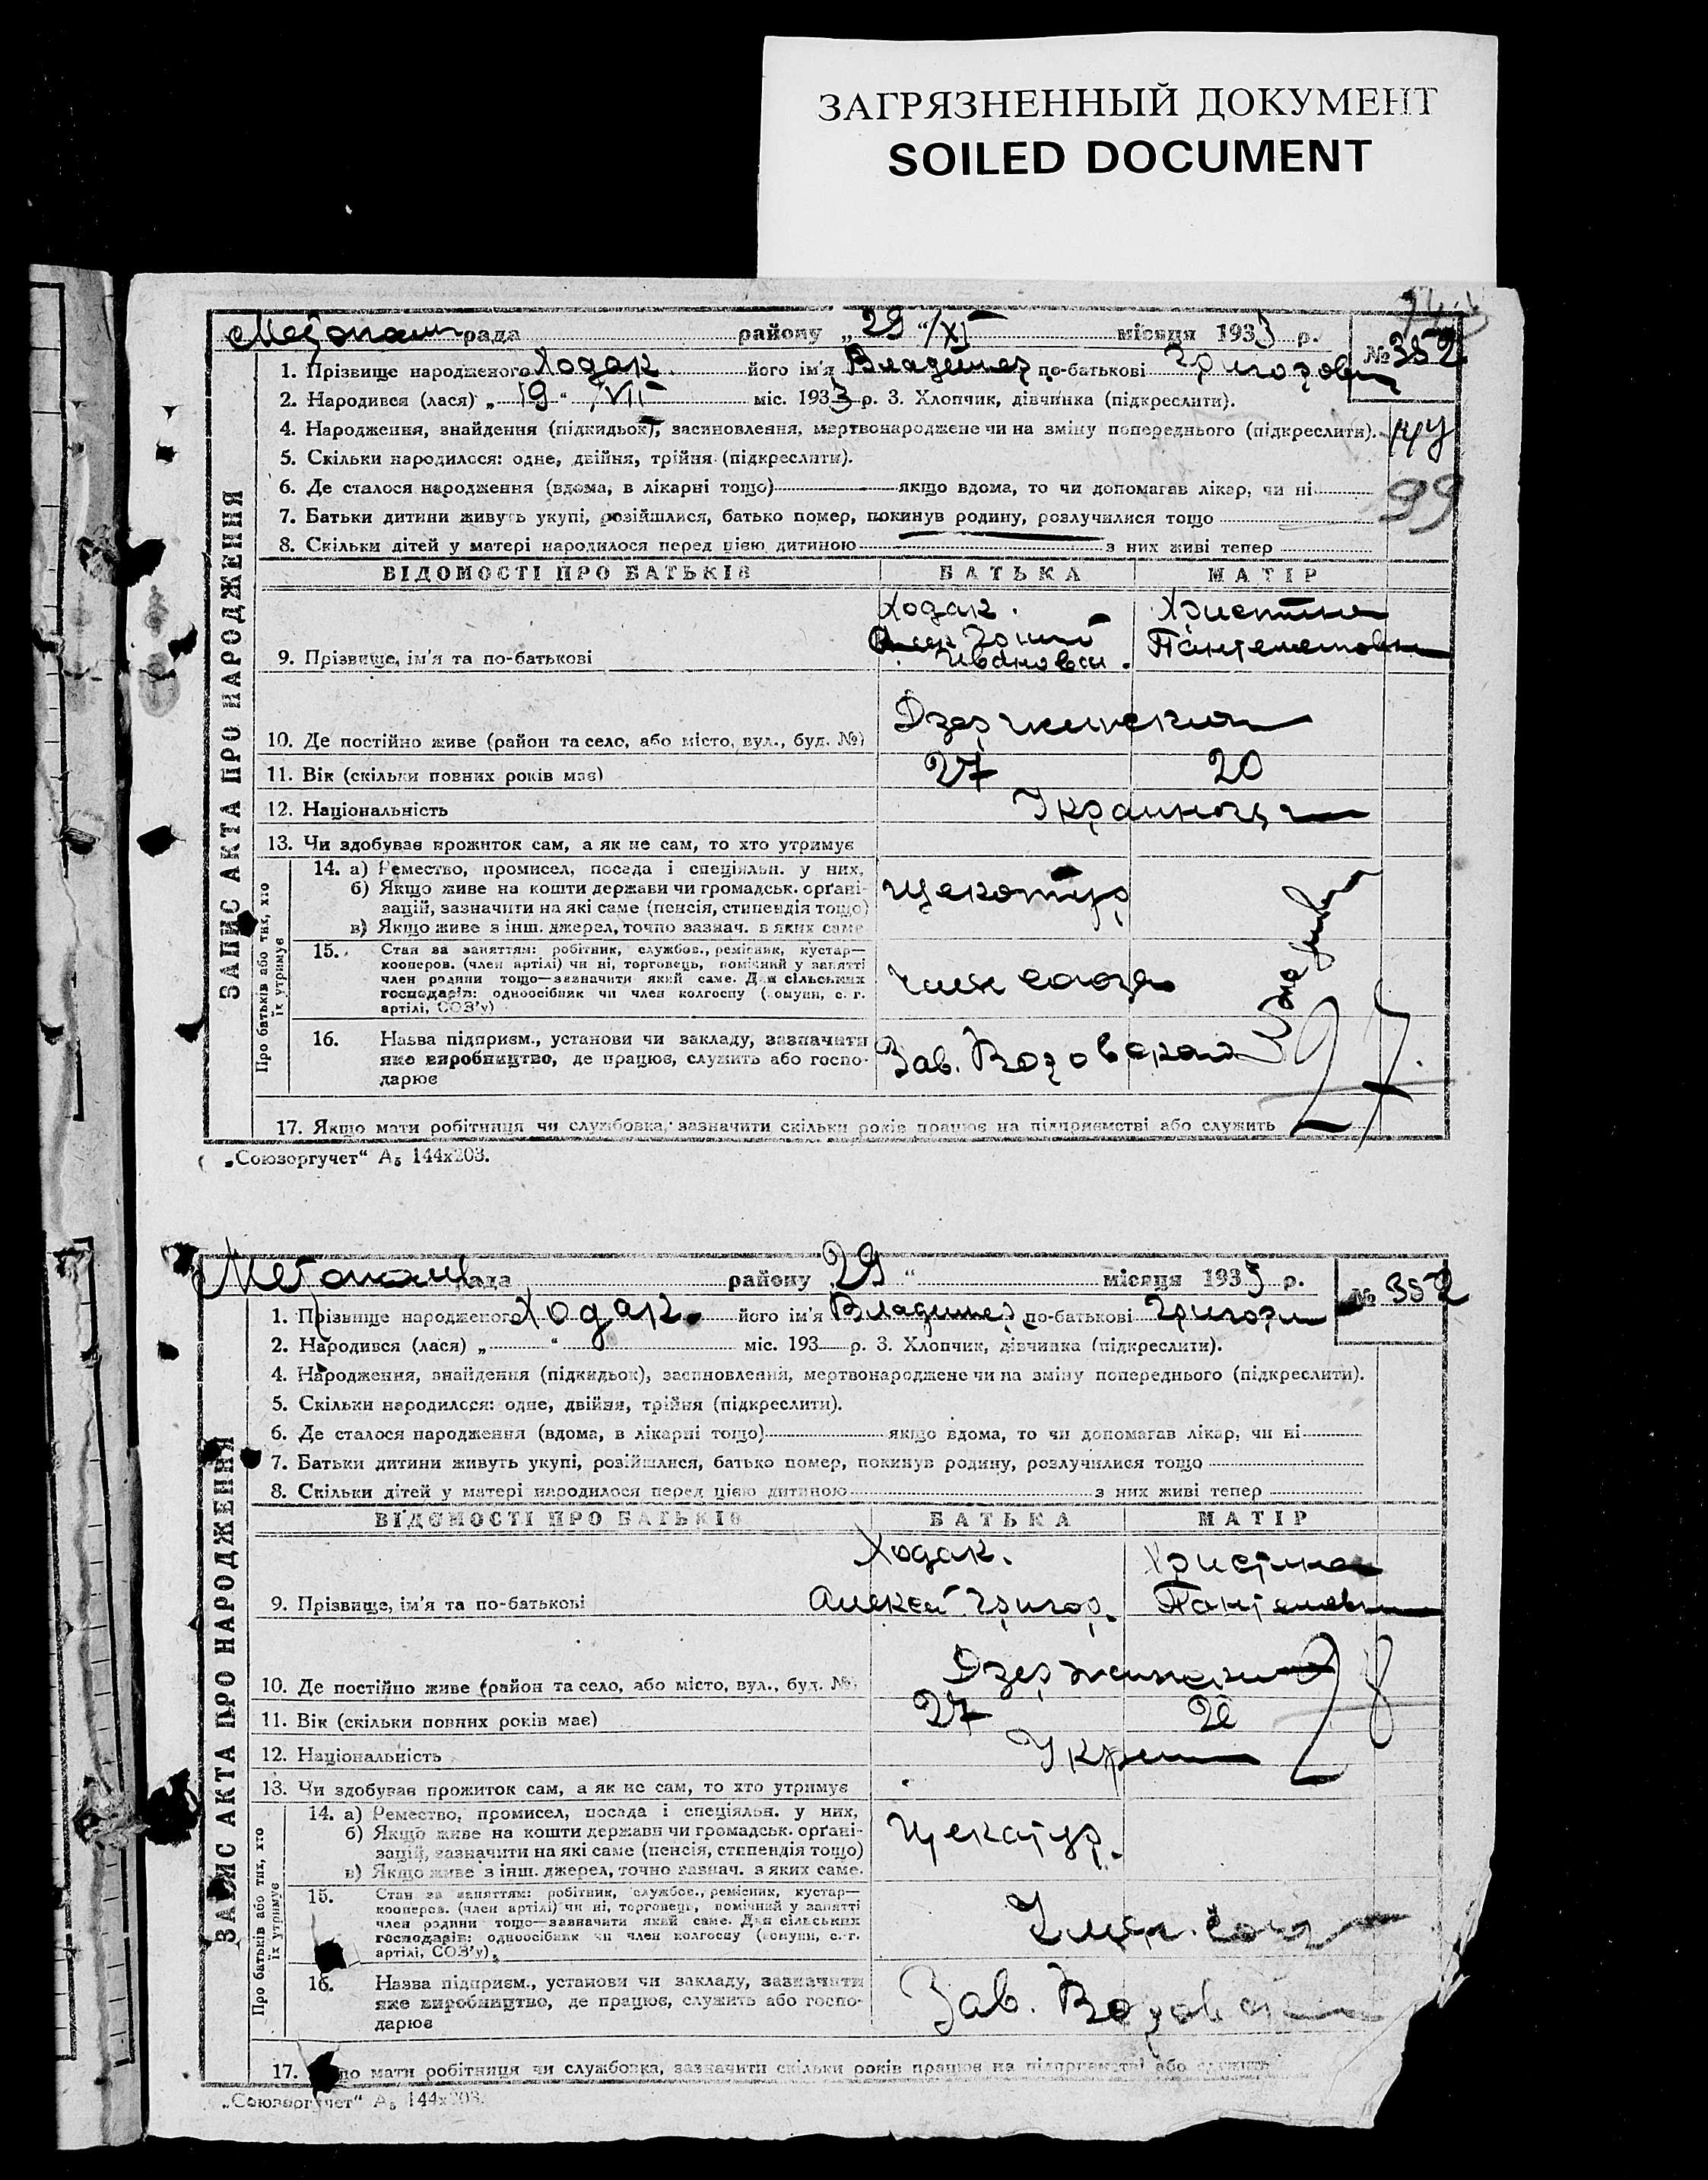 ЗАГРЯЗНЕННЫЙ ДОКУМЕНТ
SOILED DOCUMENT
рада району „29“ /XI місяця 1933 р. № 352
1. Прізвище народженого Ходак його ім'я Владимер по-батькові Григорович
2. Народився (лася) „19“ /VII міс. 1933 р. 3. Хлопчик, дівчинка (підкреслити).
4. Народження, знайдення (підкидьок), засиновлення, мертвонароджене чи на зміну попереднього (підкреслити).
5. Скільки народилося: одне, двійня, трійня (підкреслити).
6. Де сталося народження (вдома, в лікарні тощо) якщо вдома, то чи допомагав лікар, чи ні
99
7. Батьки дитини живуть укупі, розійшлися, батько помер, покинув родину, розлучилися тощо
8. Скільки дітей у матері народилося перед цією дитиною з них живі тепер
ВІДОМОСТІ ПРО БАТЬКІВ БАТЬКА МАТІР
Ходак. Христина
Ивановы.
9. Прізвище, ім'я та по-батькові
10. Де постійно живе (район та село, або місто, вул., буд. №)
11. Вік (скільки повних років має) 27 20
12. Національність
13. Чи здобуває прожиток сам, а як не сам, то хто утримує
14. а) Ремество, промисел, посада і спеціяльн. у них,
б) Якщо живе на кошти держави чи громадськ. орґані-
зацій, зазначити на які саме (пенсія, стипендія тощо)
в) Якщо живе з інш. джерел, точно зазнач. з яких саме
Щекотур
15. Стан за заняттям: робітник, службов., ремісник, кустар—
кооперов. (член артілі) чи ні, торговець, помічний у занятті
член родини тощо—зазначити який саме. Для сільських
господарів: одноосібник чи член колгоспу (комуни, с. г.
артілі, СОЗ'у)
член союза
16. Назва підприєм., установи чи закладу, зазначити
яке виробництво, де працює, служить або госпо-
дарює
Зав.
27
17. Якщо мати робітниця чи службовка, зазначити скільки років працює на підприємстві або служить
ЗАПИС АКТА ПРО НАРОДЖЕННЯ
Про батьків або тих, хто
їх утримує
„Союзоргучет“ А₅ 144х203.
рада району „29“ місяця 1933 р. № 352
1. Прізвище народженого Ходак. його ім'я Владимер по-батькові Григори
2. Народився (лася) „ “ міс. 193 р. 3. Хлопчик, дівчинка (підкреслити).
4. Народження, знайдення (підкидьок), засиновлення, мертвонароджене чи на зміну попереднього (підкреслити).
5. Скільки народилося: одне, двійня, трійня (підкреслити).
6. Де сталося народження (вдома, в лікарні тощо) якщо вдома, то чи допомагав лікар, чи ні
7. Батьки дитини живуть укупі, розійшлися, батько помер, покинув родину, розлучилися тощо
8. Скільки дітей у матері народилося перед цією дитиною з них живі тепер
ВІДОМОСТІ ПРО БАТЬКІВ БАТЬКА МАТІР
Ходак. Христина
9. Прізвище, ім'я та по-батькові Алексей Григор.
10. Де постійно живе (район та село, або місто, вул., буд. №)
28
11. Вік (скільки повних років має) 27 20
12. Національність
13. Чи здобував прожиток сам, а як не сам, то хто утримує
14. а) Ремество, промисел, посада і спеціяльн. у них,
б) Якщо живе на кошти держави чи громадськ. орґані-
зацій, зазначити на які саме (пенсія, стипендія тощо)
в) Якщо живе з інш. джерел, точно зазнач. з яких саме.
Щекатур.
15. Стан за заняттям: робітник, службов., ремісник, кустар—
кооперов. (член артілі) чи ні, торговець, помічний у занятті
член родини тощо—зазначити який саме. Для сільських
господарів: одноосібник чи член колгоспу (комуни, с. г.
артілі, СОЗ'у).
16. Назва підприєм., установи чи закладу, зазначити
яке виробництво, де працює, служить або госпо-
дарює
Зав.
17. мати робітниця чи службовка, зазначити скільки років працює на підприємстві або служить
ЗАПИС АКТА ПРО НАРОДЖЕННЯ
Про батьків або тих, хто
їх утримує
„Союзоргучет“ А₅ 144х203.